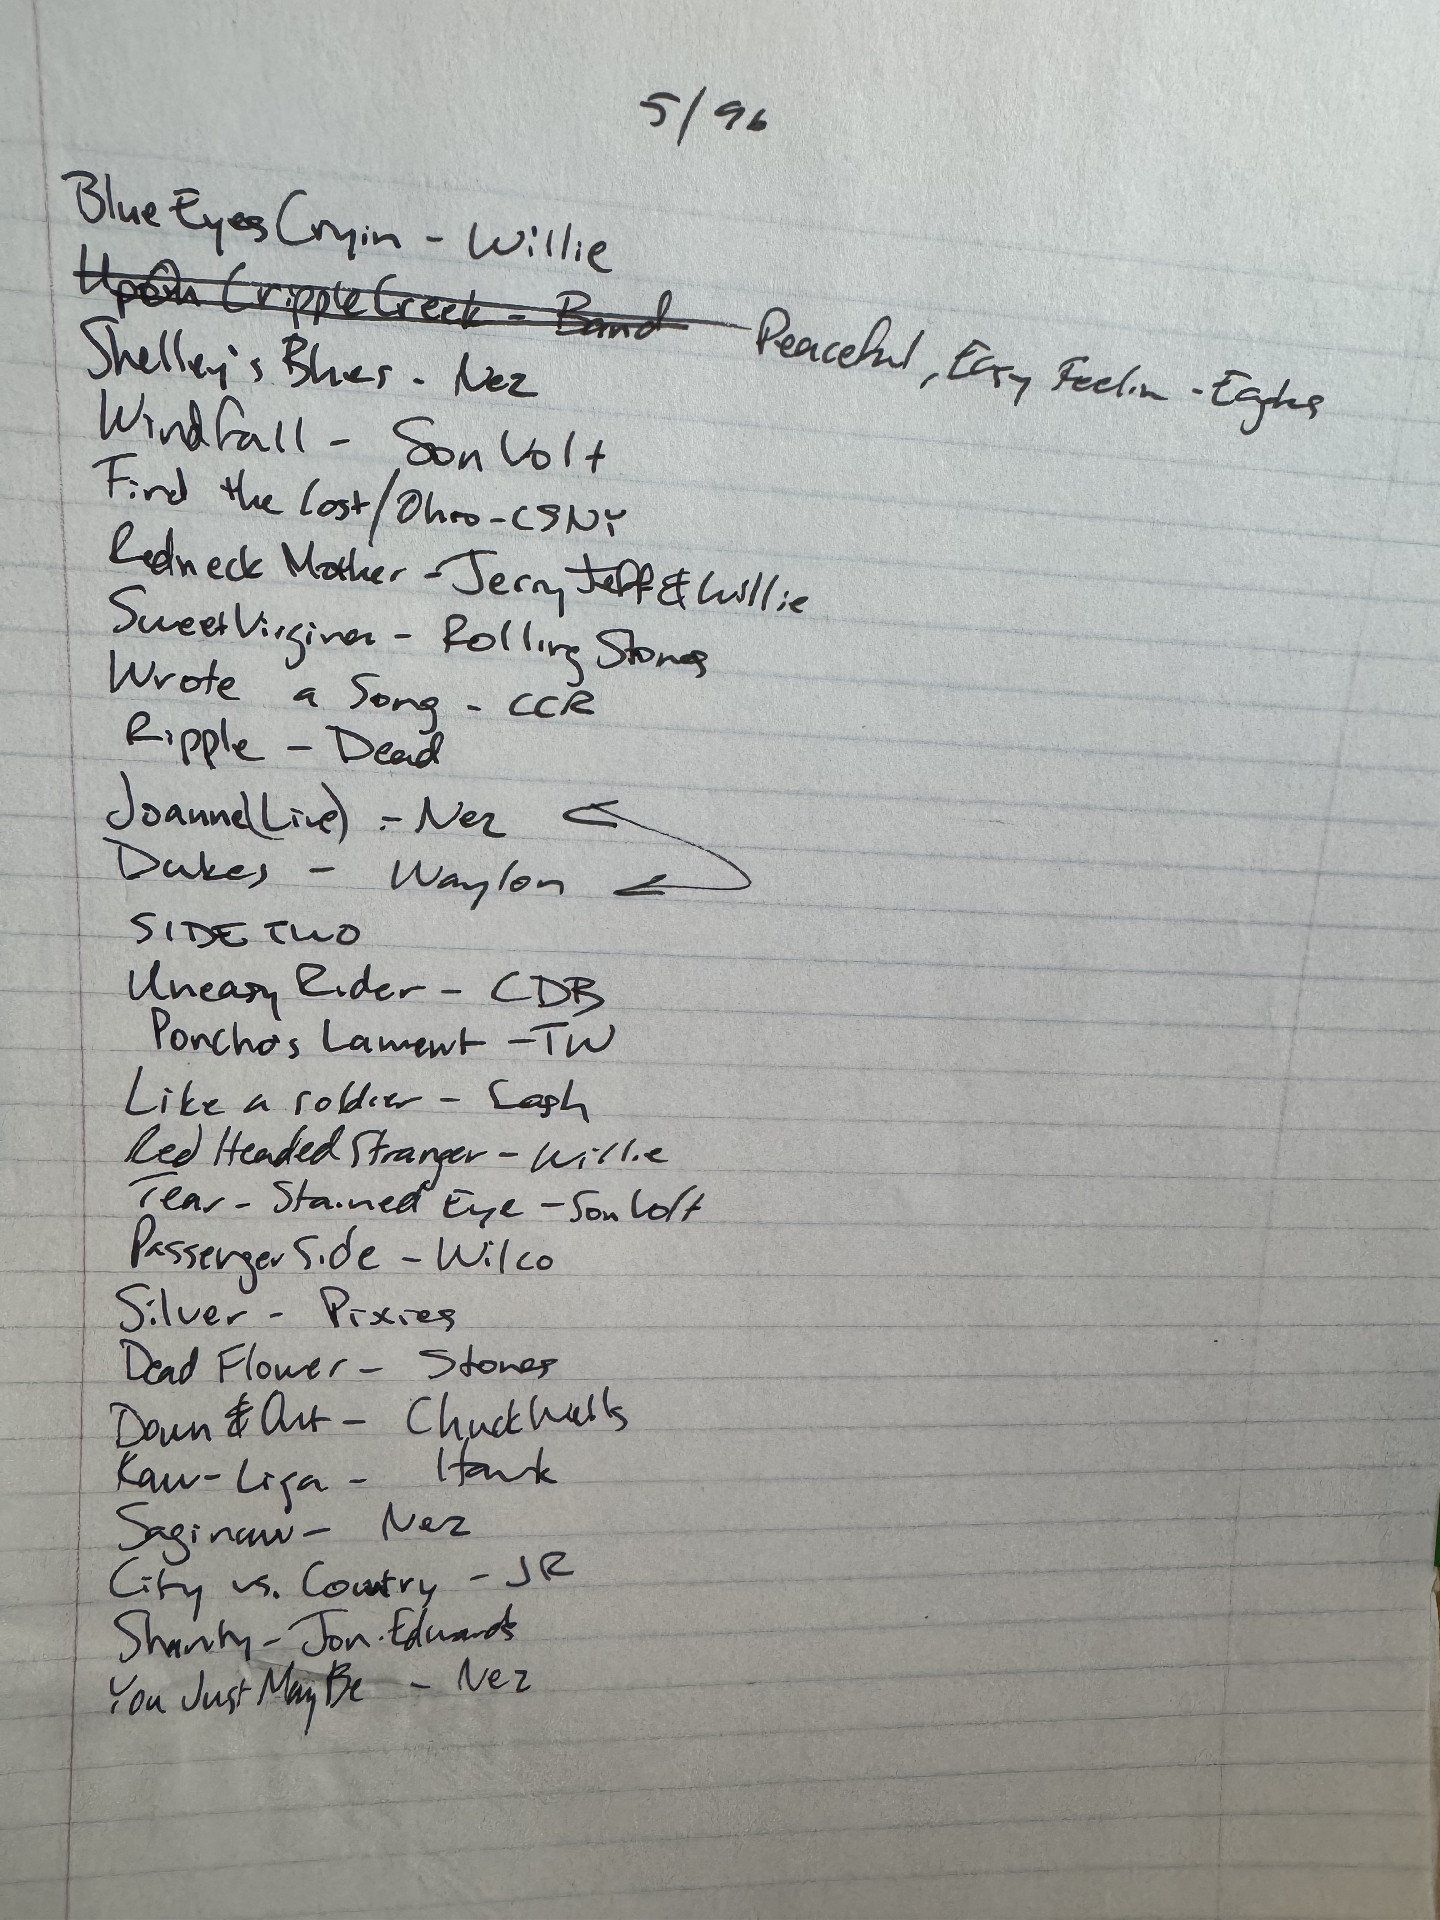 5/96
Blue Eyes Cryin - Willie
Up On Cripple Creek - Band Peaceful, Easy Feelin - Eagles
Shelley's Blues - Nez
Windfall - Son Volt
Find the Cost/Ohio - CSNY
Redneck Mother - Jerry Jeff & Willie
Sweet Virginia - Rolling Stones
Wrote a Song - CCR
Ripple - Dead
Joanne (Live) - Nez
Dukes - Waylon
SIDE TWO
Uneasy Rider - CDB
Poncho's Lament - TW
Like a soldier - Cash
Red Headed Stranger - Willie
Tear - Stained Eye - Son Volt
Passenger Side - Wilco
Silver - Pixies
Dead Flower - Stones
Down & Out - Chuck Wells
Kaw-Liga - Hank
Saginaw - Nez
City vs. Country - JR
Shanty - Jon. Edwards
You Just May Be - Nez